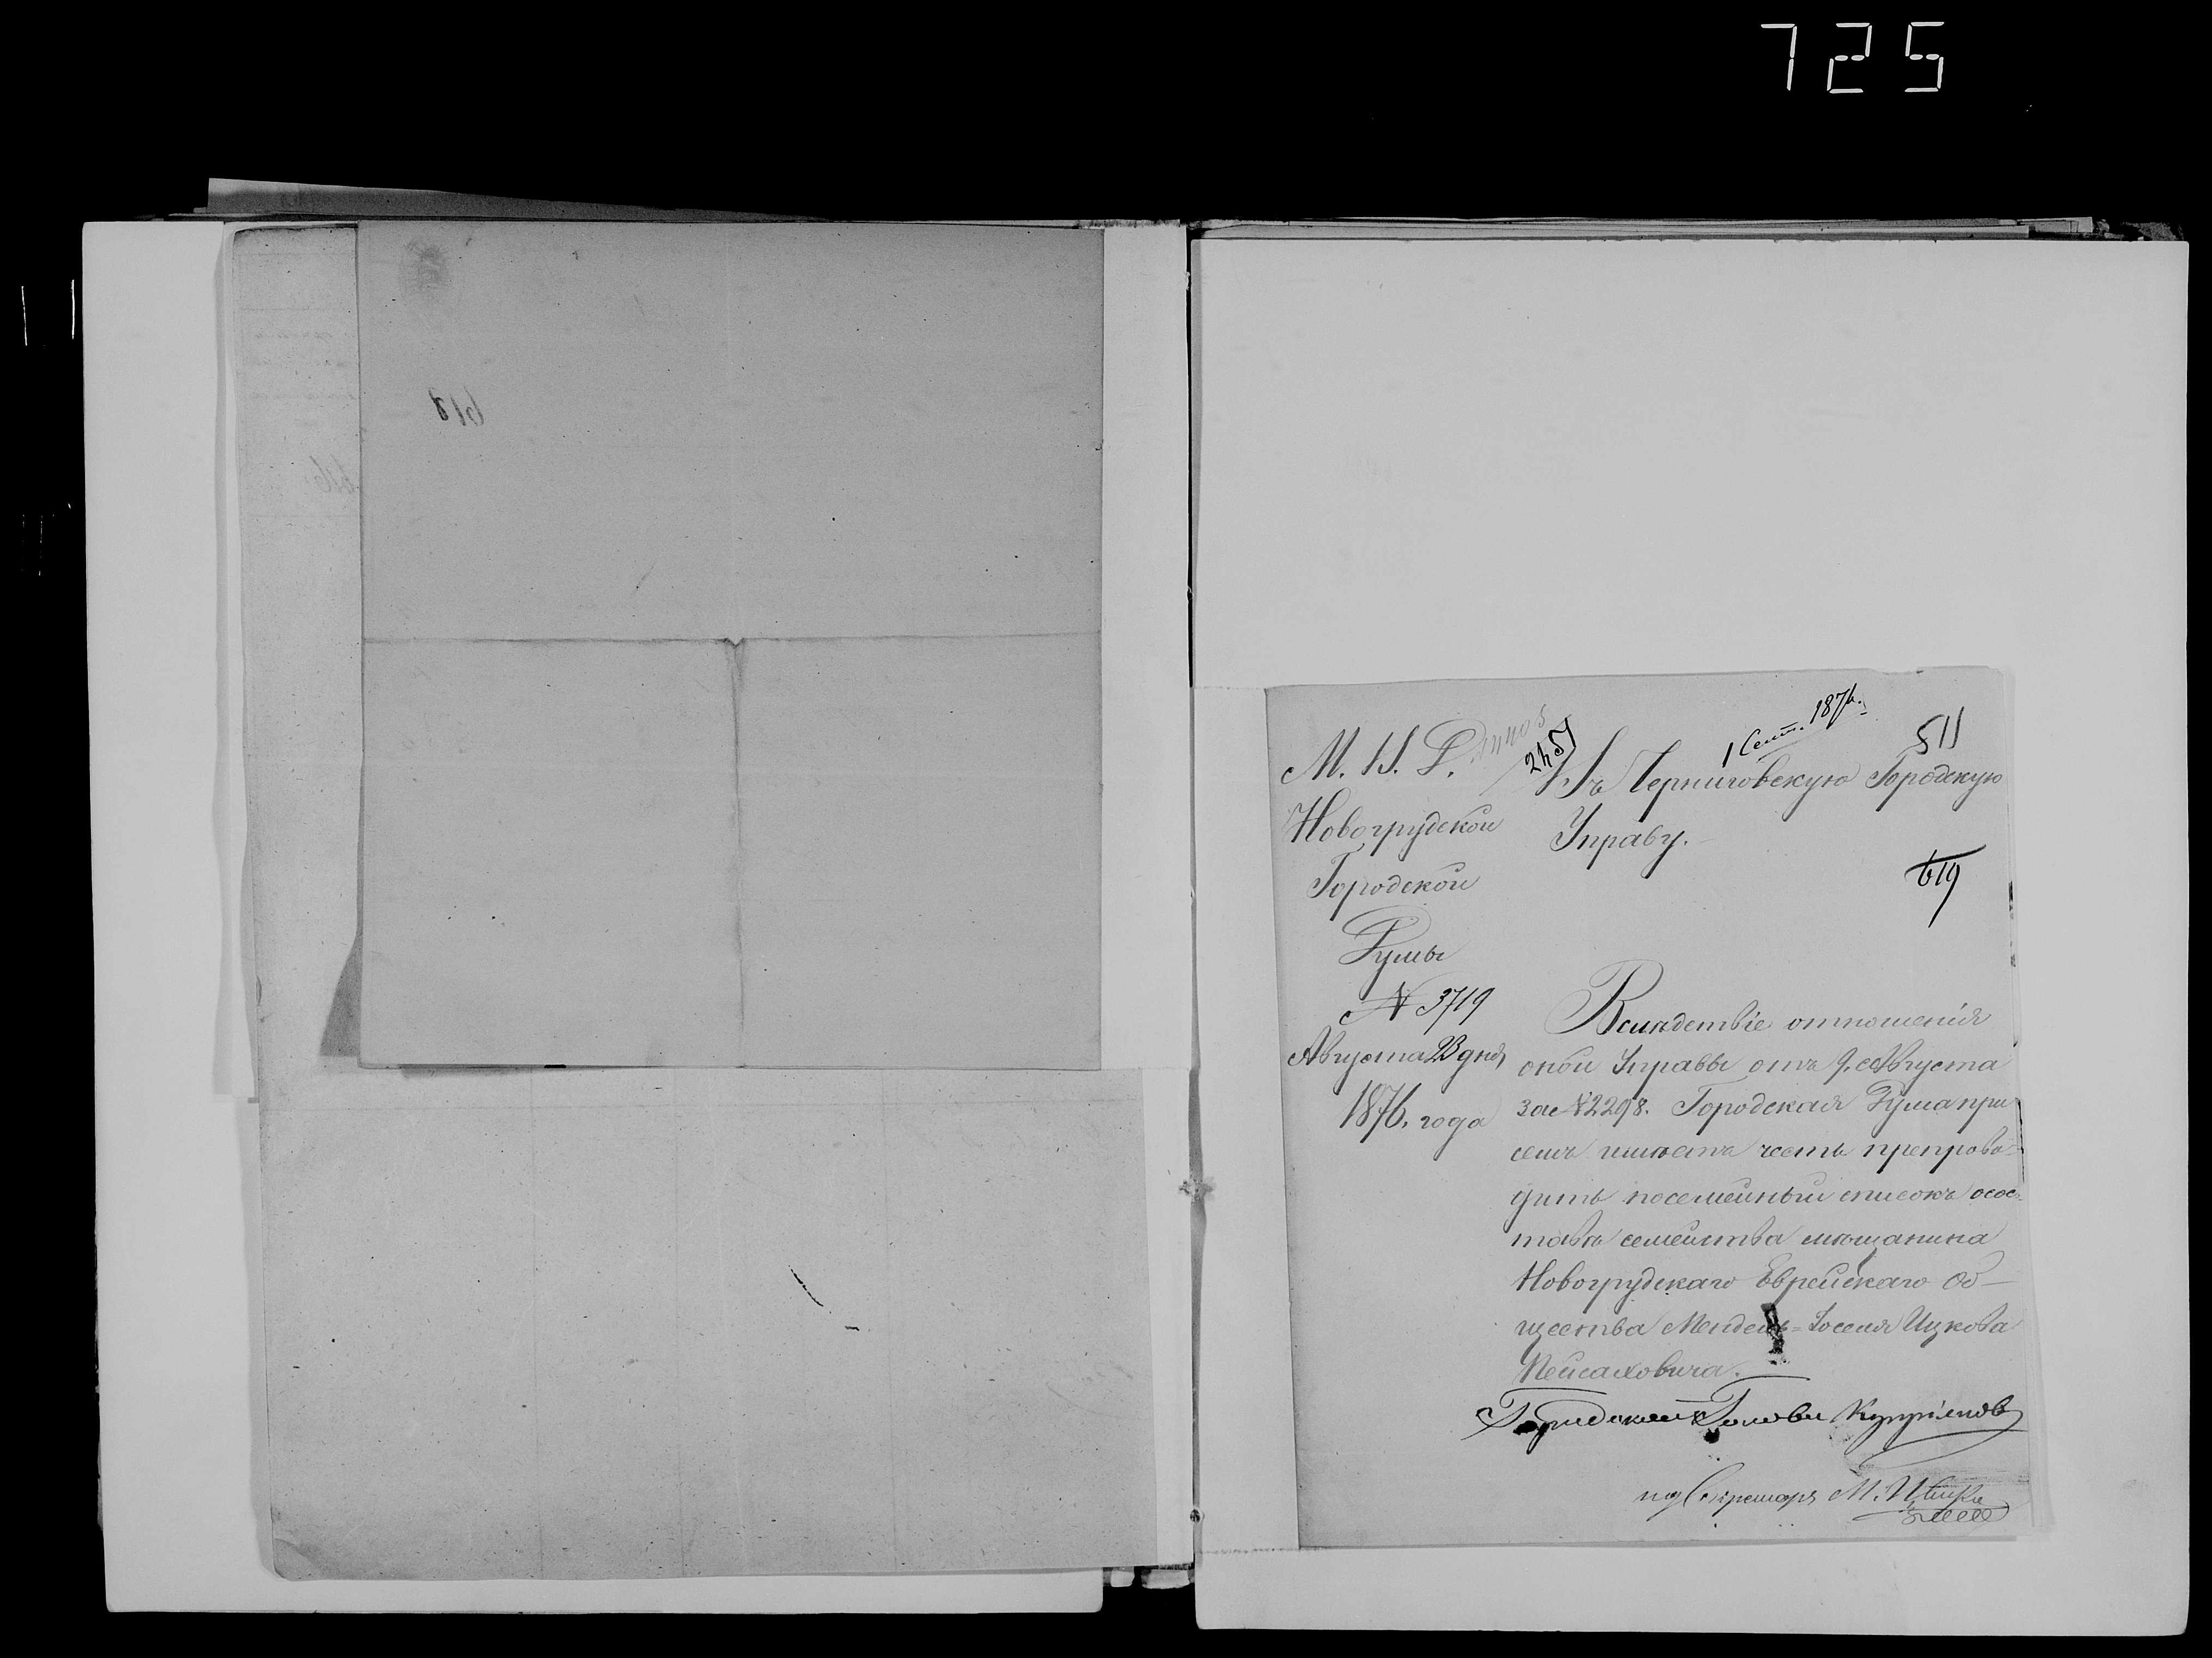 725
618
М. В. Д.
Новогрудской
Городской
Думы
№ 3719
Августа 23 дня
1876. года
2451
1 Сент. 1876.
511
Въ Черниговскую Городскую
Управу.
619
Вслѣдствіе отношенія
оной Управы отъ 9. Августа
за № 2298. Городская Дума при
семъ имѣетъ честь препрово-
дить посемейный списокъ о сос-
тавѣ семейства мѣщанина
Новогрудскаго Еврейскаго Об-
щества Мендель-Іоселя Ицкова
Пейсаховича.
Городской Голова Куприянов
Секретарь М.